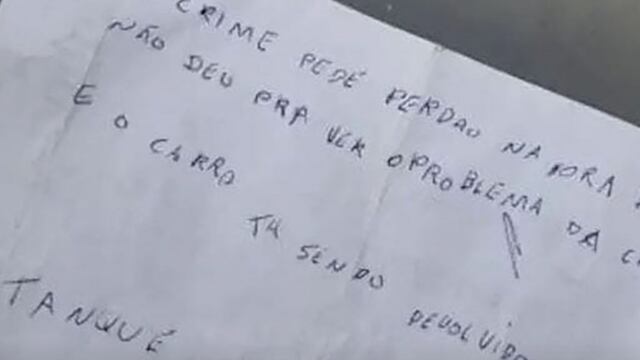 CRIME PEDE PERDAO NA HORA
NÃO DEU PRA VER O PROBLEMA DA
E O CARRO TA SENDO DEVOLVIDO
TANQUÉ